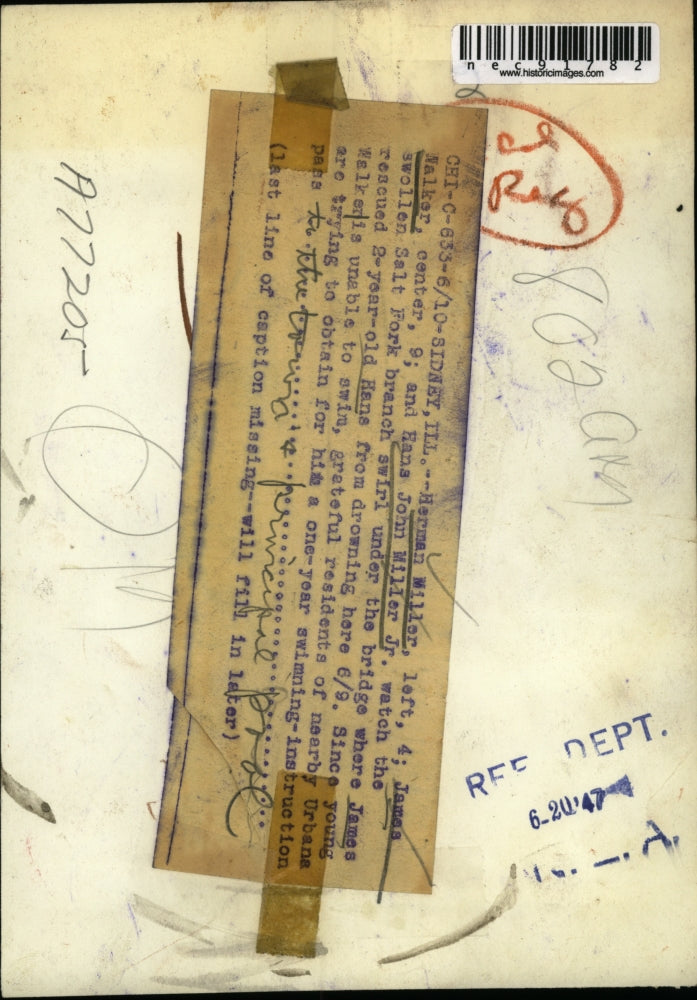 nec91782
www.historicimages.com
CHI-C-633-6/10-SIDNEY, ILL.--Herman Miller, left, 4; James
Walker, center, 9; and Hans John Miller Jr. watch the
swollen Salt Fork branch swirl under the bridge where James
rescued 2-year-old Hans from drowning here 6/9. Since young
Walker is unable to swim, grateful residents of nearby Urbana
are trying to obtain for him a one-year swimming-instruction
pass to the town's municipal pool
(last line of caption missing--will fill in later)
A77205
802
REF DEPT.
6-20'47
A.